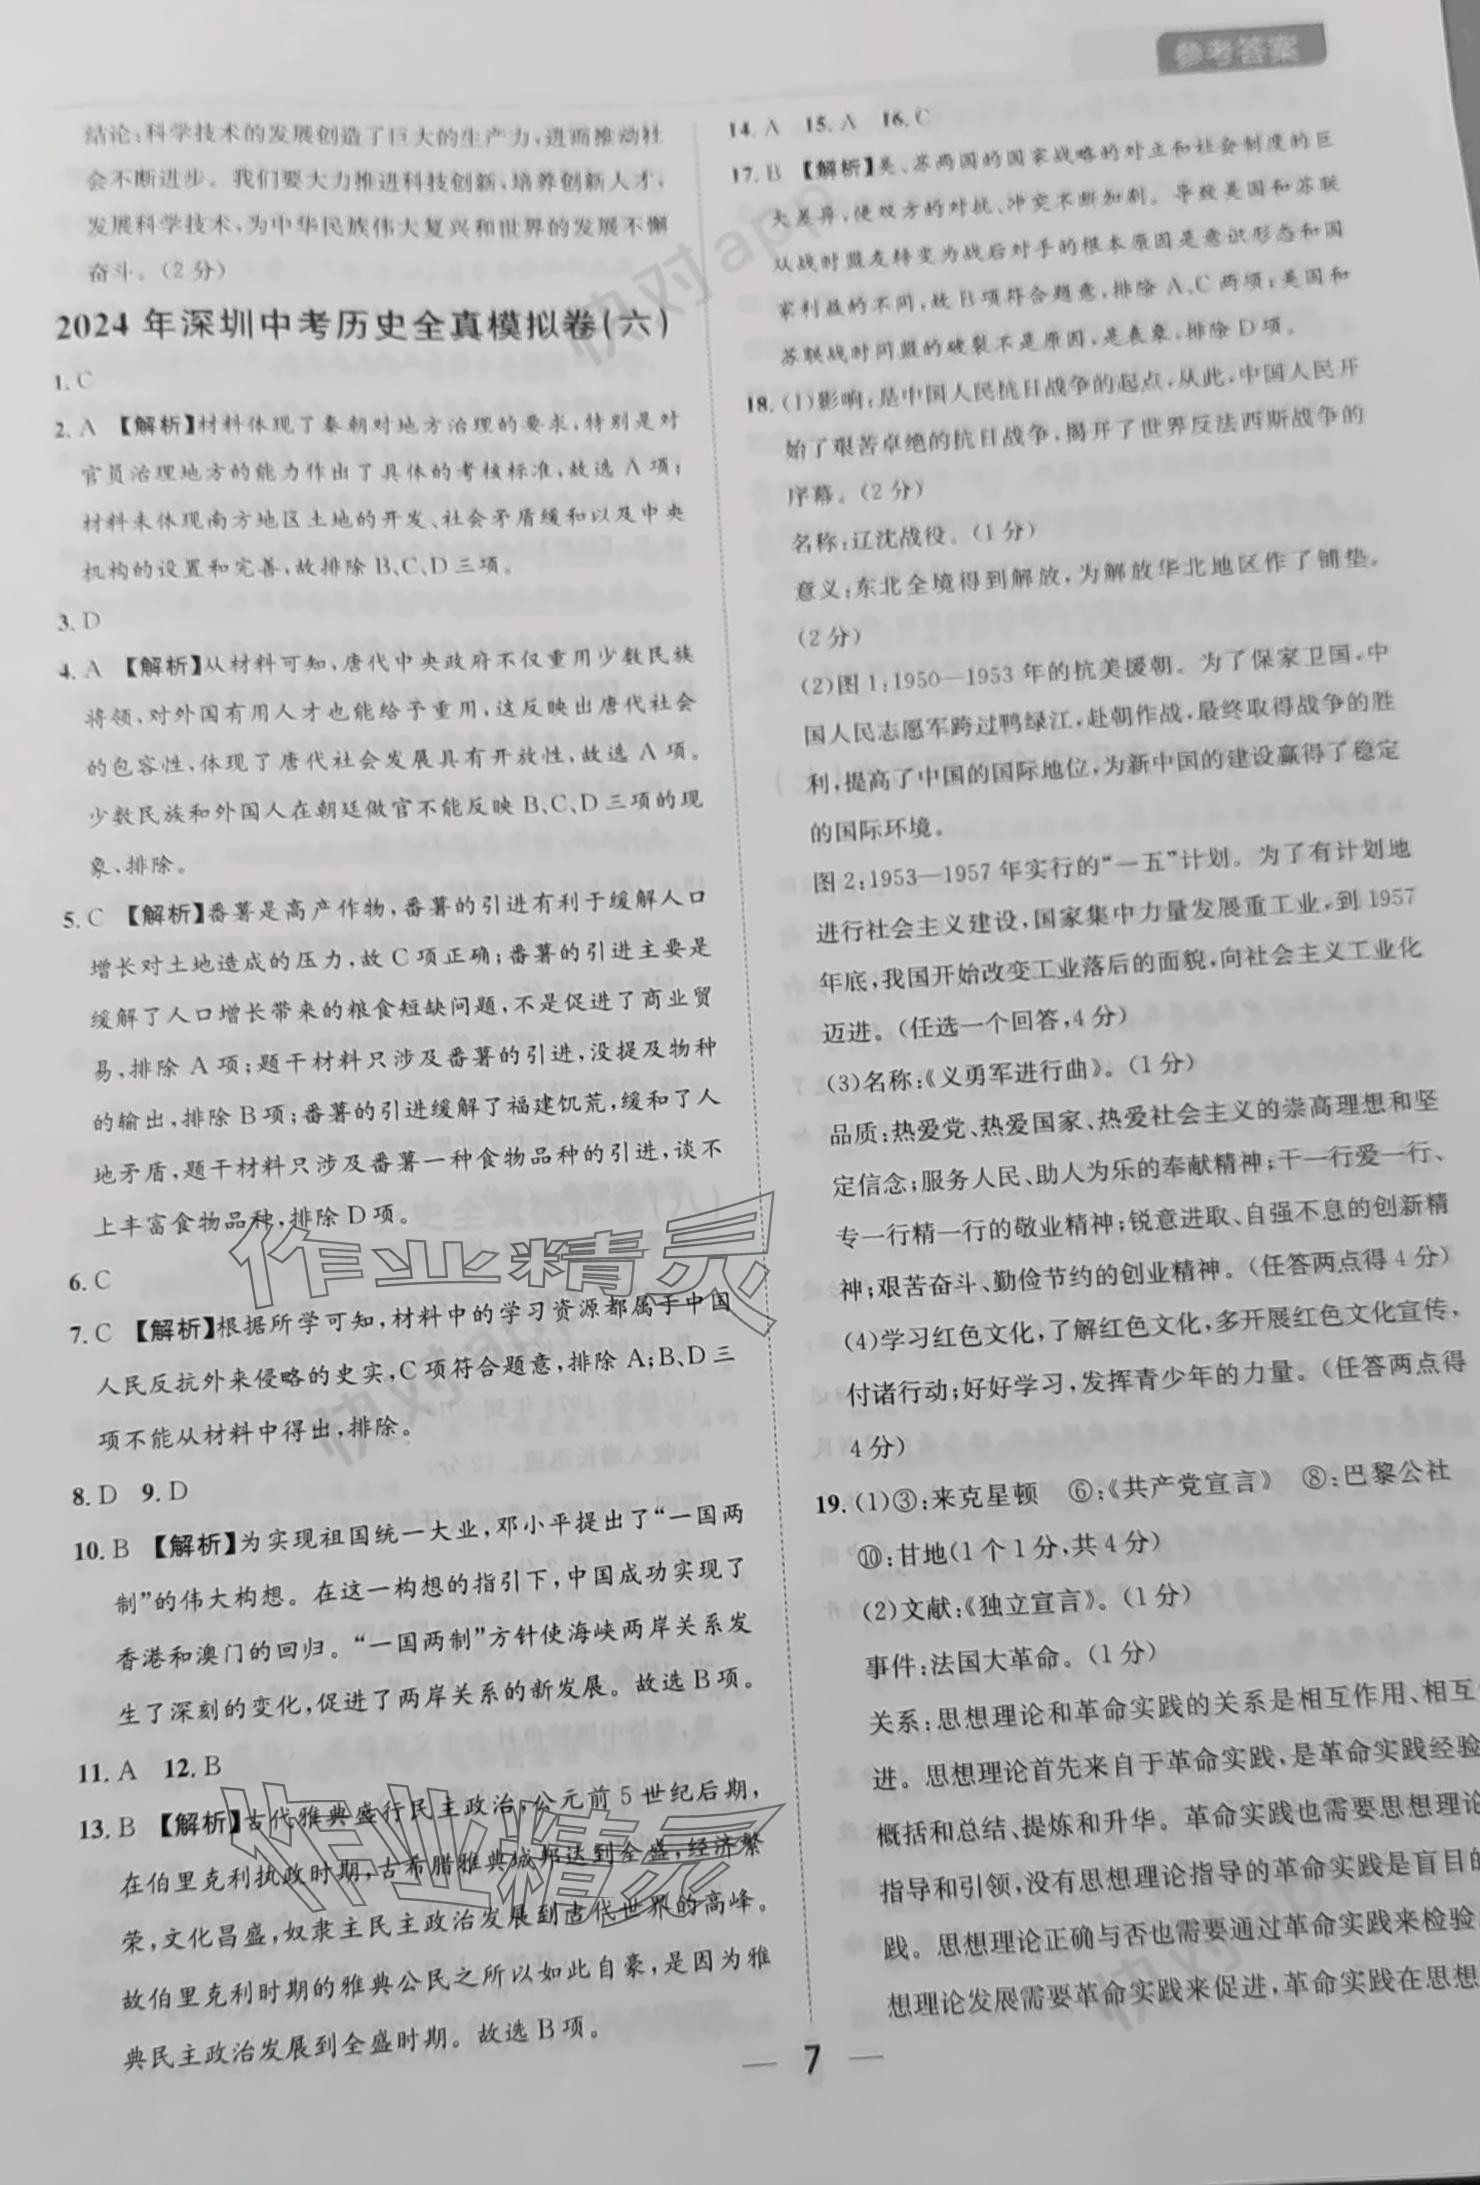 参考答案
结论:科学技术的发展创造了巨大的生产力,进而推动社
会不断进步。我们要大力推进科技创新,培养创新人才,
发展科学技术,为中华民族伟大复兴和世界的发展不懈
奋斗。(2分)
2024年深圳中考历史全真模拟卷(六)
1.C
2.A 【解析】材料体现了秦朝对地方治理的要求,特别是对
官员治理地方的能力作出了具体的考核标准,故选A项;
材料未体现南方地区土地的开发、社会矛盾缓和以及中央
机构的设置和完善,故排除B、C、D三项。
3.D
4.A 【解析】从材料可知,唐代中央政府不仅重用少数民族
将领,对外国有用人才也能给予重用,这反映出唐代社会
的包容性,体现了唐代社会发展具有开放性,故选A项。
少数民族和外国人在朝廷做官不能反映B、C、D三项的现
象,排除。
5.C 【解析】番薯是高产作物,番薯的引进有利于缓解人口
增长对土地造成的压力,故C项正确;番薯的引进主要是
缓解了人口增长带来的粮食短缺问题,不是促进了商业贸
易,排除A项;题干材料只涉及番薯的引进,没提及物种
的输出,排除B项;番薯的引进缓解了福建饥荒,缓和了人
地矛盾,题干材料只涉及番薯一种食物品种的引进,谈不
上丰富食物品种,排除D项。
6.C
7.C 【解析】根据所学可知,材料中的学习资源都属于中国
人民反抗外来侵略的史实,C项符合题意,排除A;B、D三
项不能从材料中得出,排除。
8.D 9.D
10.B 【解析】为实现祖国统一大业,邓小平提出了“一国两
制”的伟大构想。在这一构想的指引下,中国成功实现了
香港和澳门的回归。“一国两制”方针使海峡两岸关系发
生了深刻的变化,促进了两岸关系的新发展。故选B项。
11.A 12.B
13.B 【解析】古代雅典盛行民主政治,公元前5世纪后期,
在伯里克利执政时期,古希腊雅典城邦达到全盛,经济繁
荣,文化昌盛,奴隶主民主政治发展到古代世界的高峰。
故伯里克利时期的雅典公民之所以如此自豪,是因为雅
典民主政治发展到全盛时期。故选B项。
14.A 15.A 16.C
17.B 【解析】美、苏两国的国家战略的对立和社会制度的巨
大差异,使双方的对抗、冲突不断加剧。导致美国和苏联
从战时盟友转变为战后对手的根本原因是意识形态和国
家利益的不同,故B项符合题意,排除A、C两项;美国和
苏联战时同盟的破裂不是原因,是表象,排除D项。
18.(1)影响:是中国人民抗日战争的起点,从此,中国人民开
始了艰苦卓绝的抗日战争,揭开了世界反法西斯战争的
序幕。(2分)
名称:辽沈战役。(1分)
意义:东北全境得到解放,为解放华北地区作了铺垫。
(2分)
(2)图1:1950—1953年的抗美援朝。为了保家卫国,中
国人民志愿军跨过鸭绿江,赴朝作战,最终取得战争的胜
利,提高了中国的国际地位,为新中国的建设赢得了稳定
的国际环境。
图2:1953—1957年实行的“一五”计划。为了有计划地
进行社会主义建设,国家集中力量发展重工业,到1957
年底,我国开始改变工业落后的面貌,向社会主义工业化
迈进。(任选一个回答,4分)
(3)名称:《义勇军进行曲》。(1分)
品质:热爱党、热爱国家、热爱社会主义的崇高理想和坚
定信念;服务人民、助人为乐的奉献精神;干一行爱一行、
专一行精一行的敬业精神;锐意进取、自强不息的创新精
神;艰苦奋斗、勤俭节约的创业精神。(任答两点得4分)
(4)学习红色文化,了解红色文化,多开展红色文化宣传,
付诸行动;好好学习,发挥青少年的力量。(任答两点得
4分)
19.(1)③:来克星顿 ⑥:《共产党宣言》 ⑧:巴黎公社
⑩:甘地(1个1分,共4分)
(2)文献:《独立宣言》。(1分)
事件:法国大革命。(1分)
关系:思想理论和革命实践的关系是相互作用、相互
进。思想理论首先来自于革命实践,是革命实践经验
概括和总结、提炼和升华。革命实践也需要思想理论
指导和引领,没有思想理论指导的革命实践是盲目的
践。思想理论正确与否也需要通过革命实践来检验
想理论发展需要革命实践来促进,革命实践在思想
— 7 —
快对app
作业精灵
快对app
作业精灵
快对app